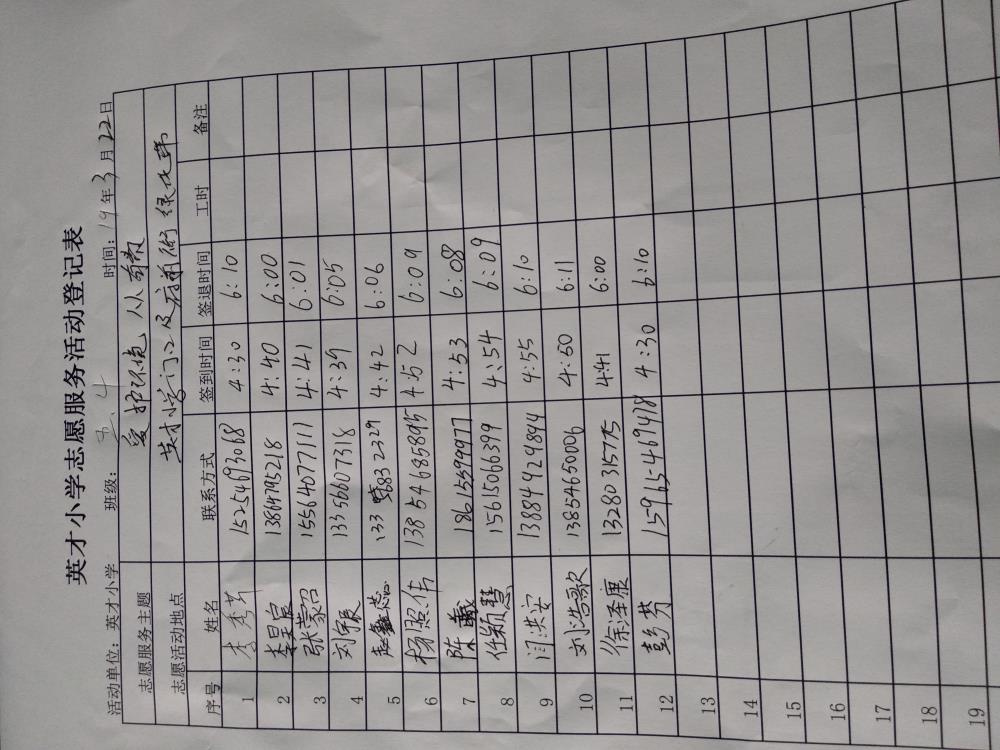 英才小学志愿服务活动登记表
活动单位：英才小学 班级：三、4 时间：19年3月22日
志愿服务主题 爱护环境，从
志愿活动地点 英才小学门口及府前街绿化带
序号 姓名 联系方式 签到时间 签退时间 工时 备注
1 李秀芳 15254693068 4:30 6:10
2 李昊宸 13864795218 4:40 6:00
3 张蒙召 15564077111 4:41 6:01
4 刘宇辰 13356607318 4:39 6:05
5 赵鑫蕊 133 5683 2329 4:42 6:06
6 杨照伟 13854685895 4:52 6:09
7 陈曦 18615599977 4:53 6:08
8 任颖慧 15615066399 4:54 6:09
9 闫洪安 13884929844 4:55 6:10
10 刘浩歌 13854650006 4:50 6:11
11 徐泽康 13280315775 4:41 6:00
12 彭芬 15965469478 4:30 6:10
13
14
15
16
17
18
19